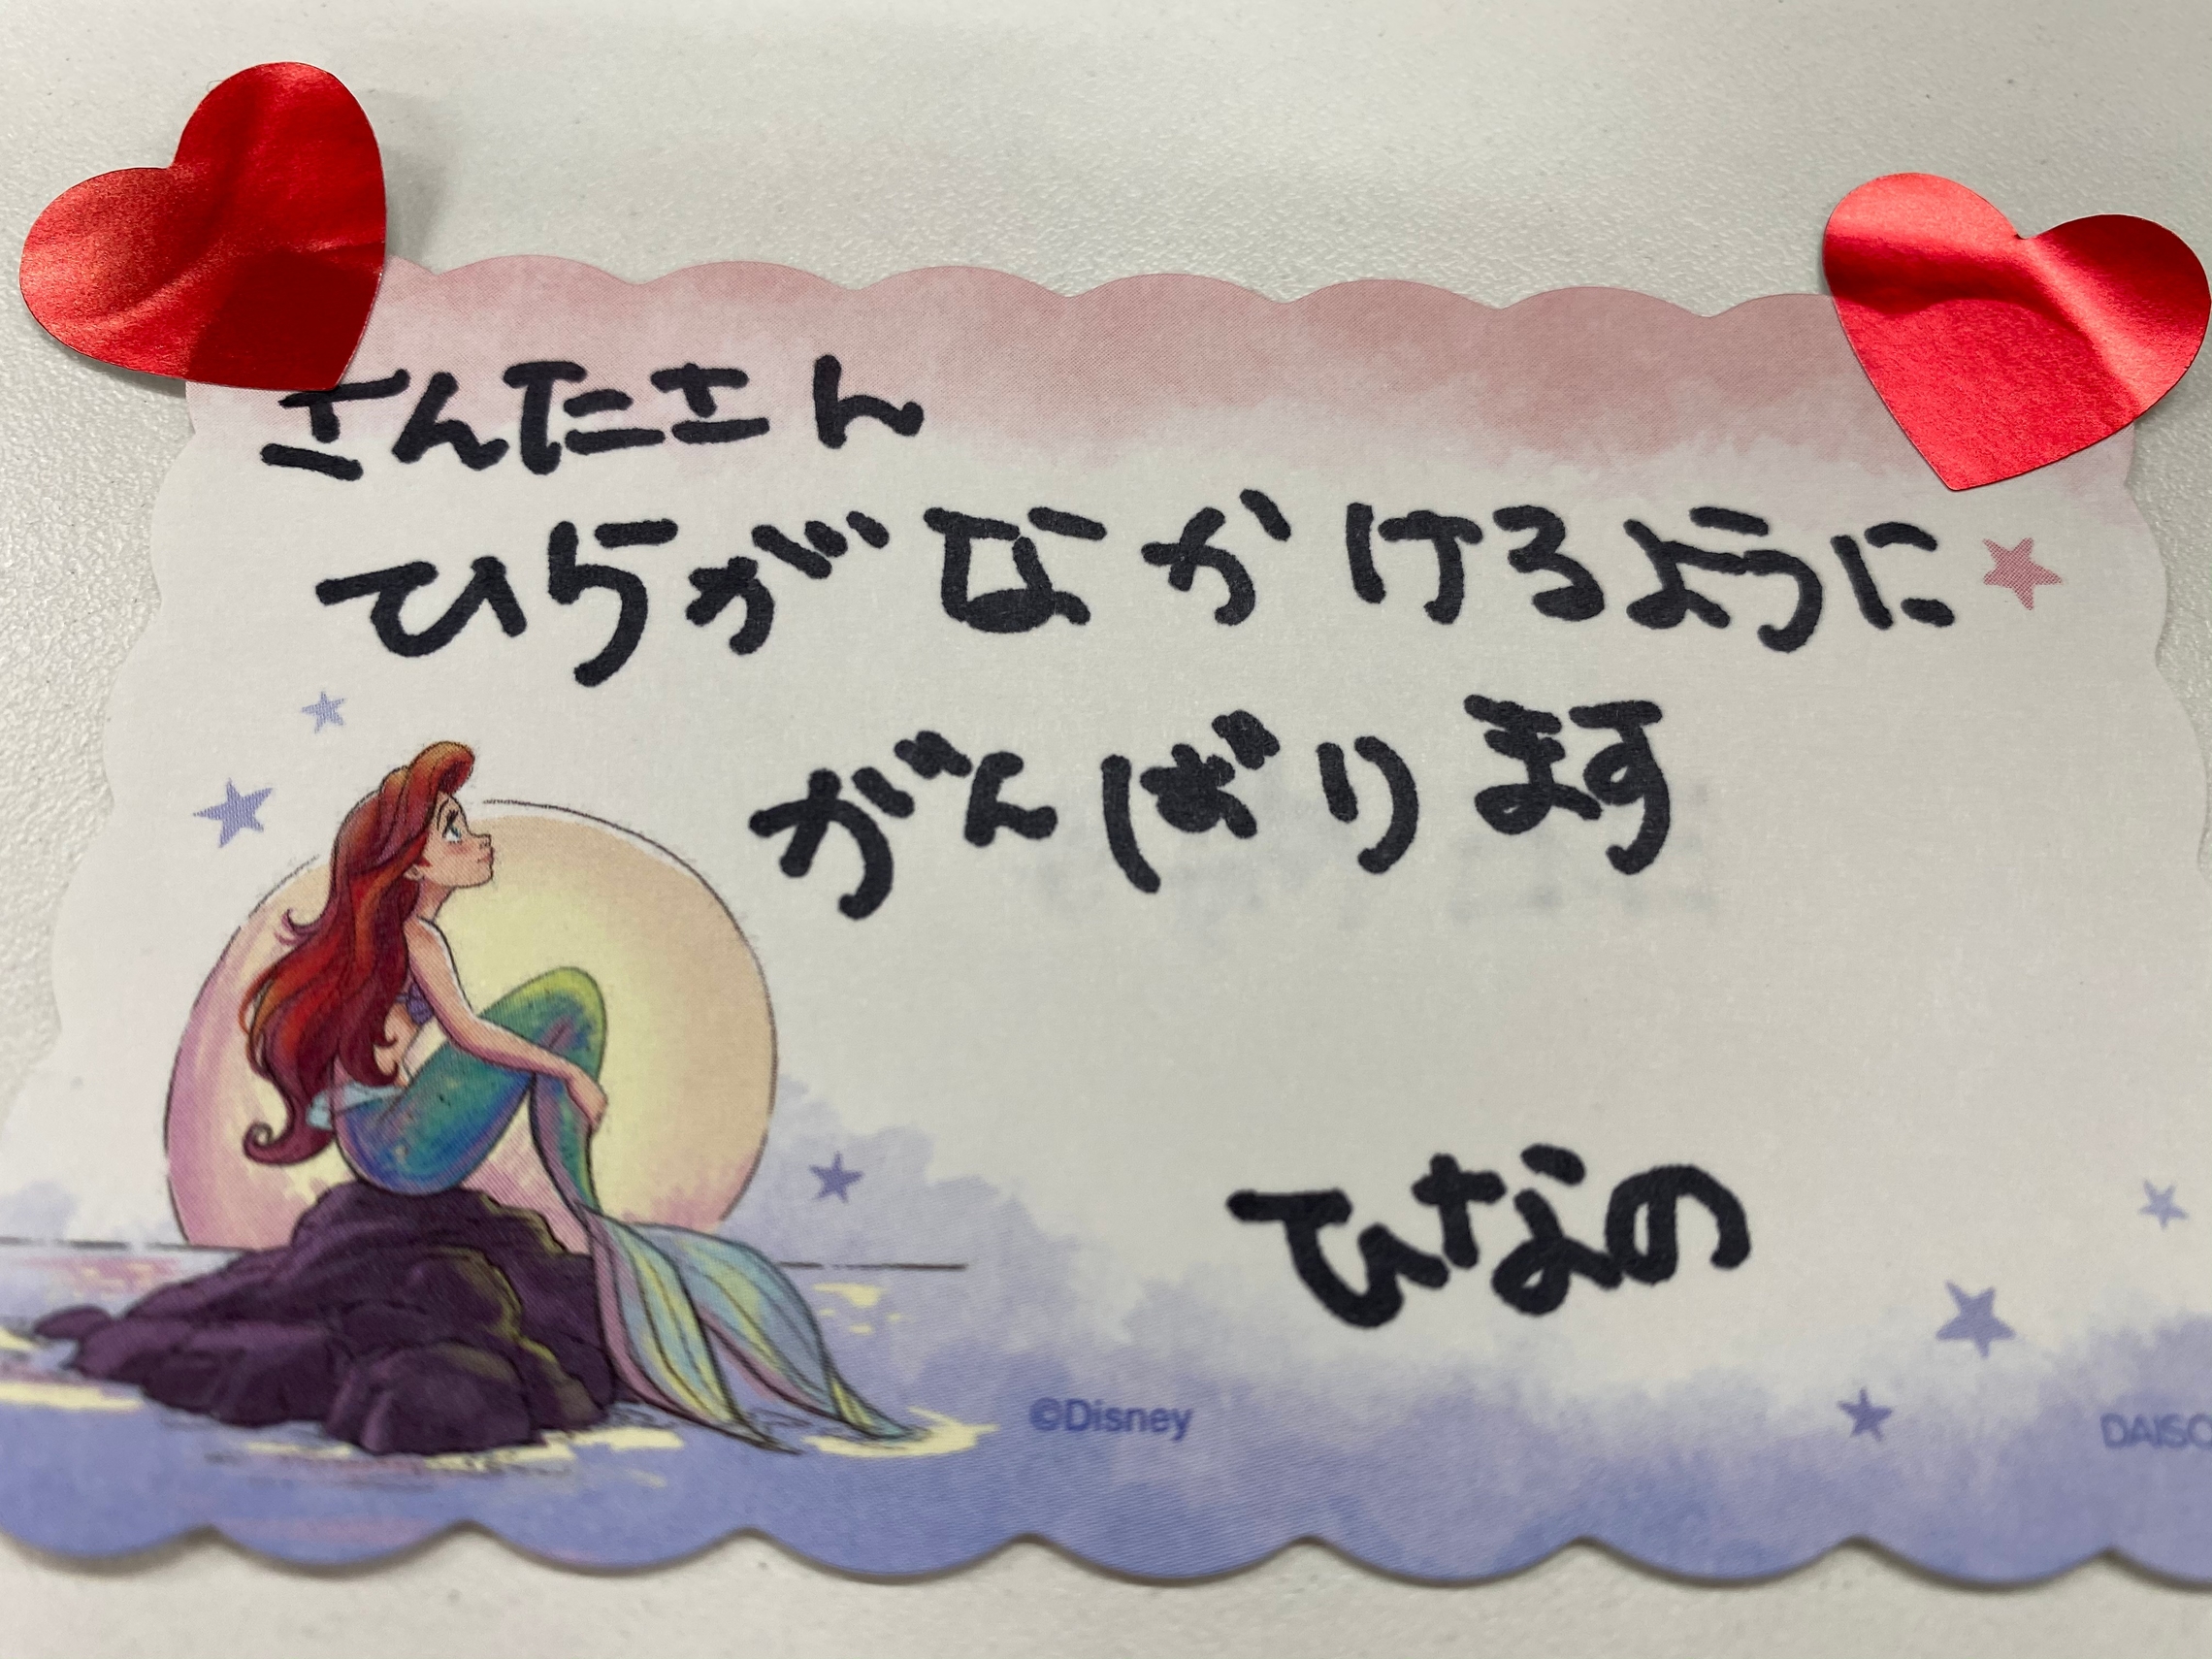 さんたさん
ひらがなかけるように
がんばります
ひなの
©Disney
DAISO